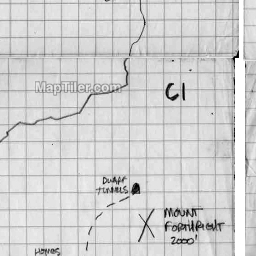 MapTiler.com
C1
DWARF
TUNNELS
MOUNT
FORTHRIGHT
2000'